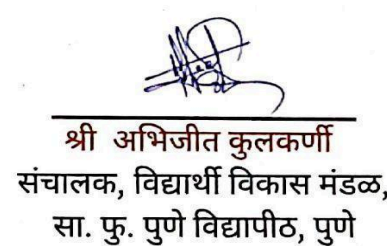 श्री अभिजीत कुलकर्णी
संचालक, विद्यार्थी विकास मंडळ,
सा. फु. पुणे विद्यापीठ, पुणे